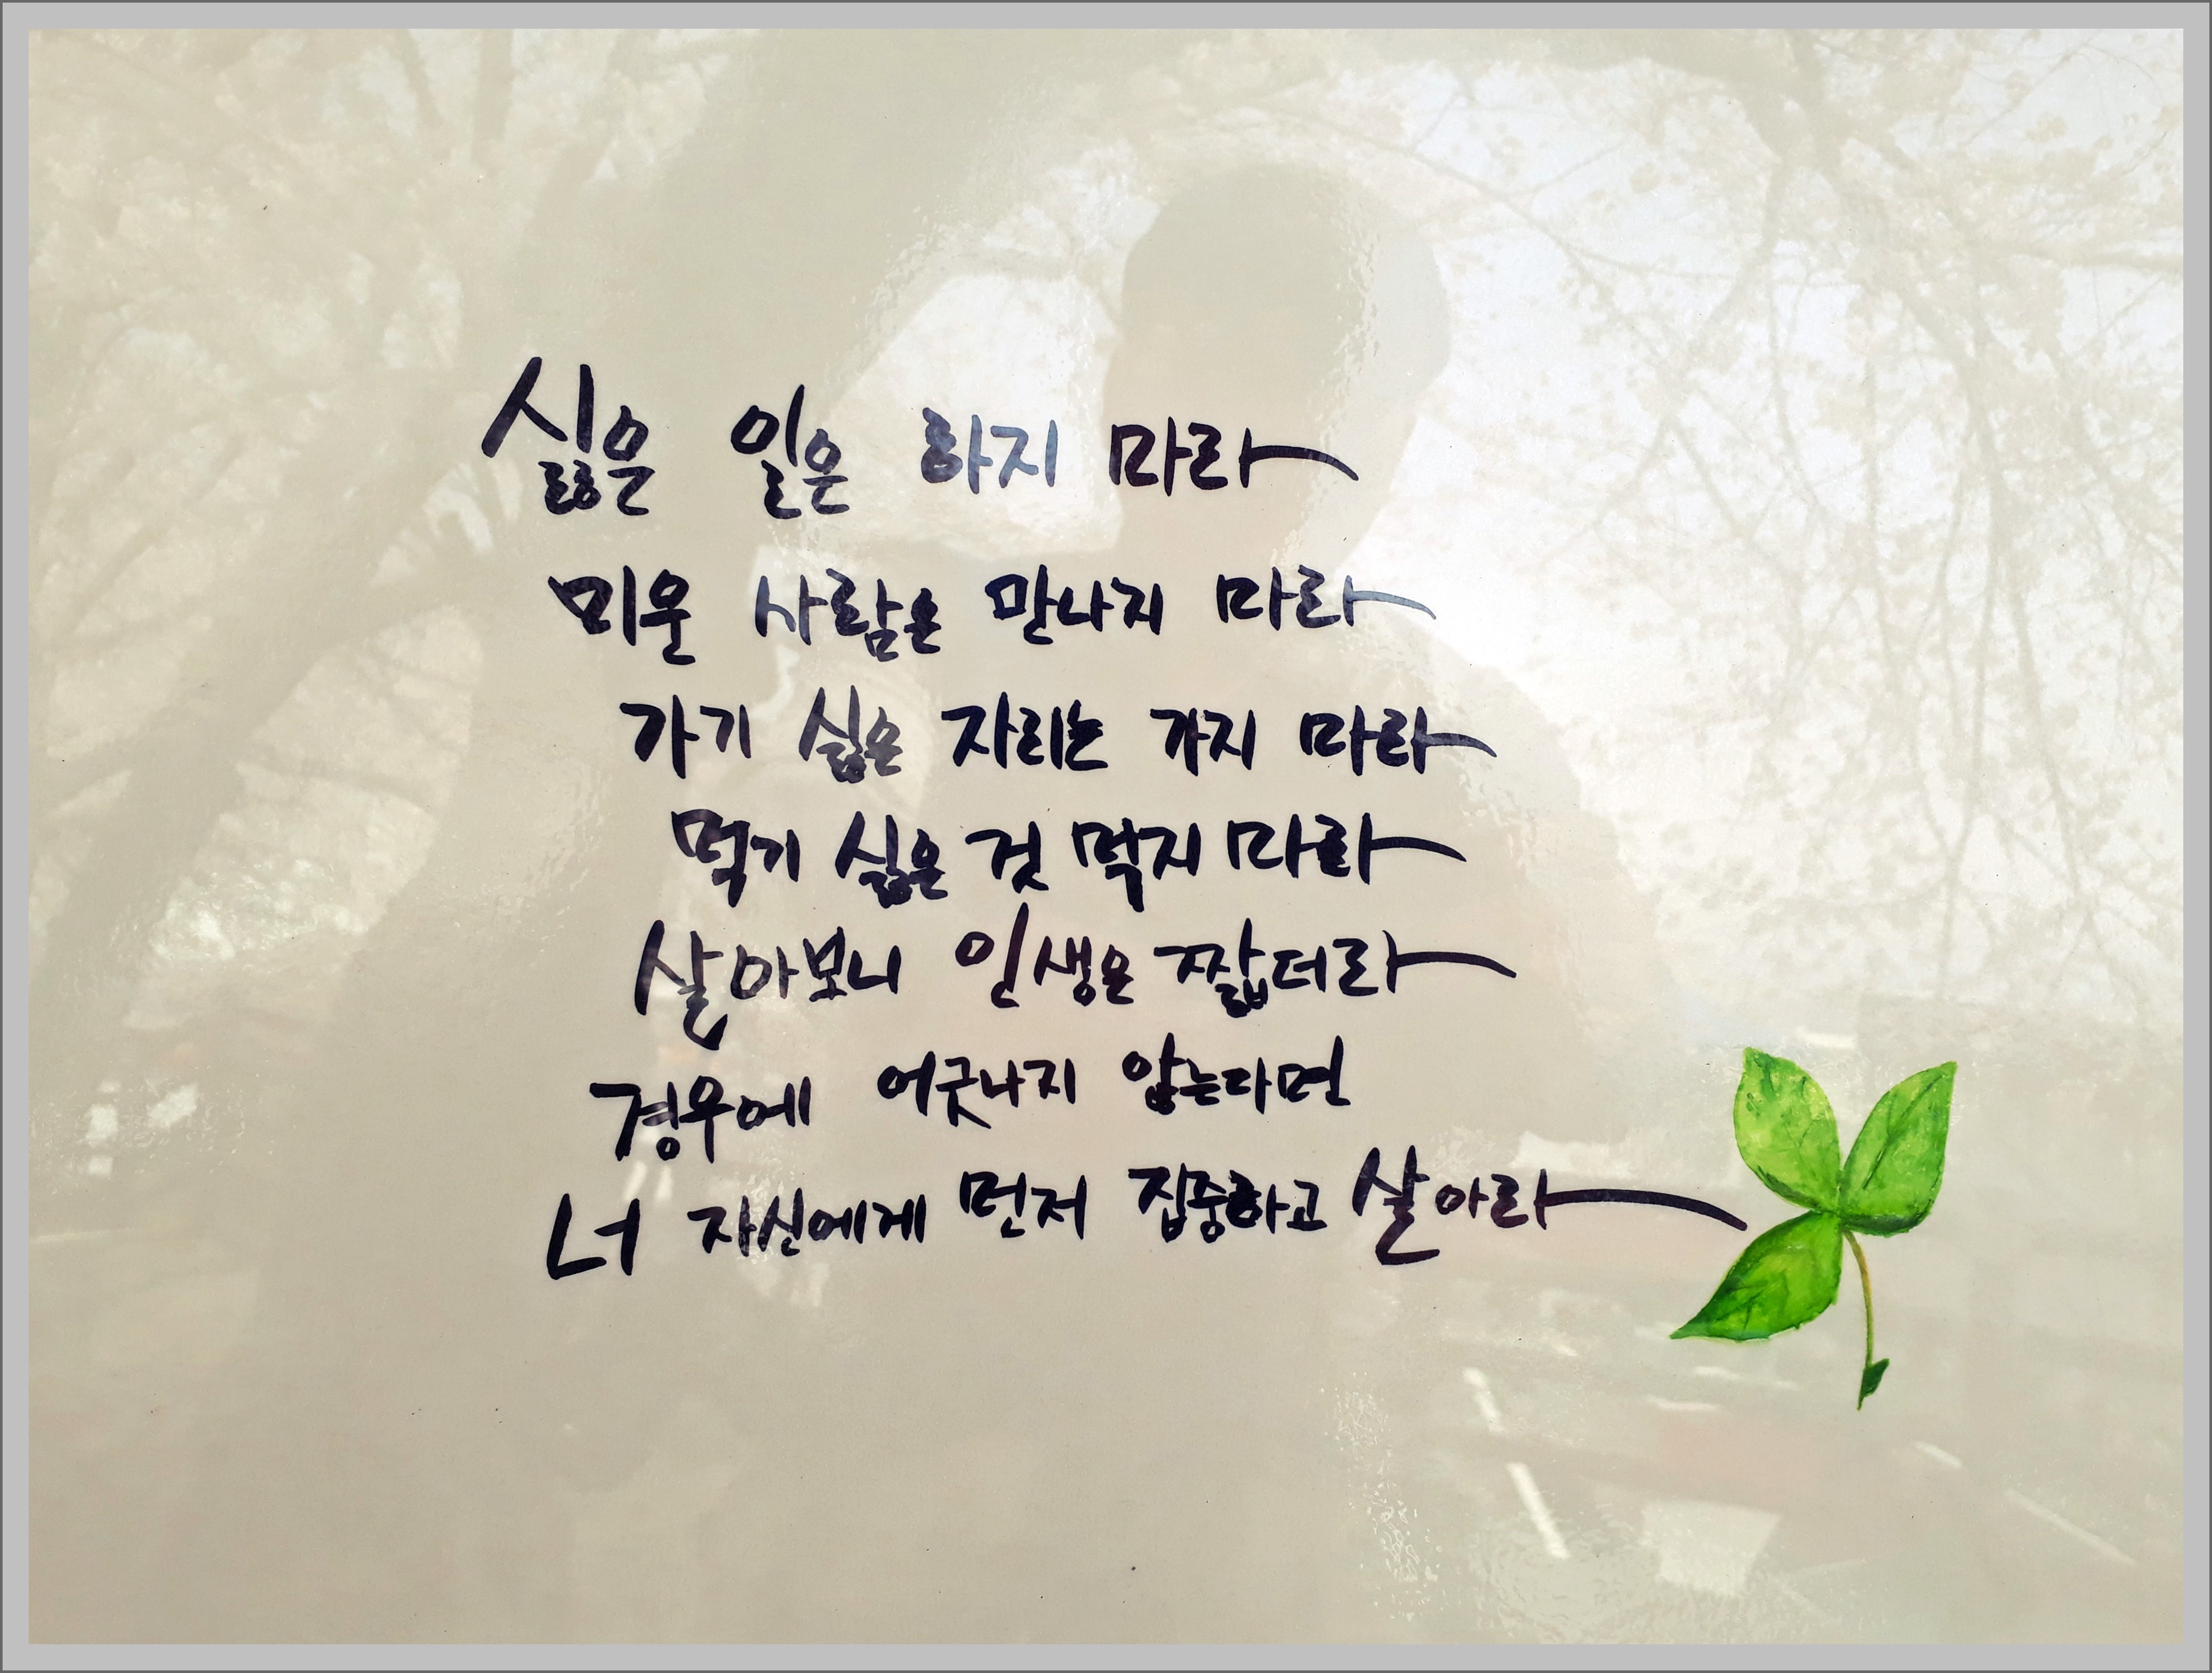 싫은 일은 하지 마라
미운 사람은 만나지 마라
가기 싫은 자리는 가지 마라
먹기 싫은 것 먹지 마라
살아보니 인생은 짧더라
경우에 어긋나지 않는다면
너 자신에게 먼저 집중하고 살아라